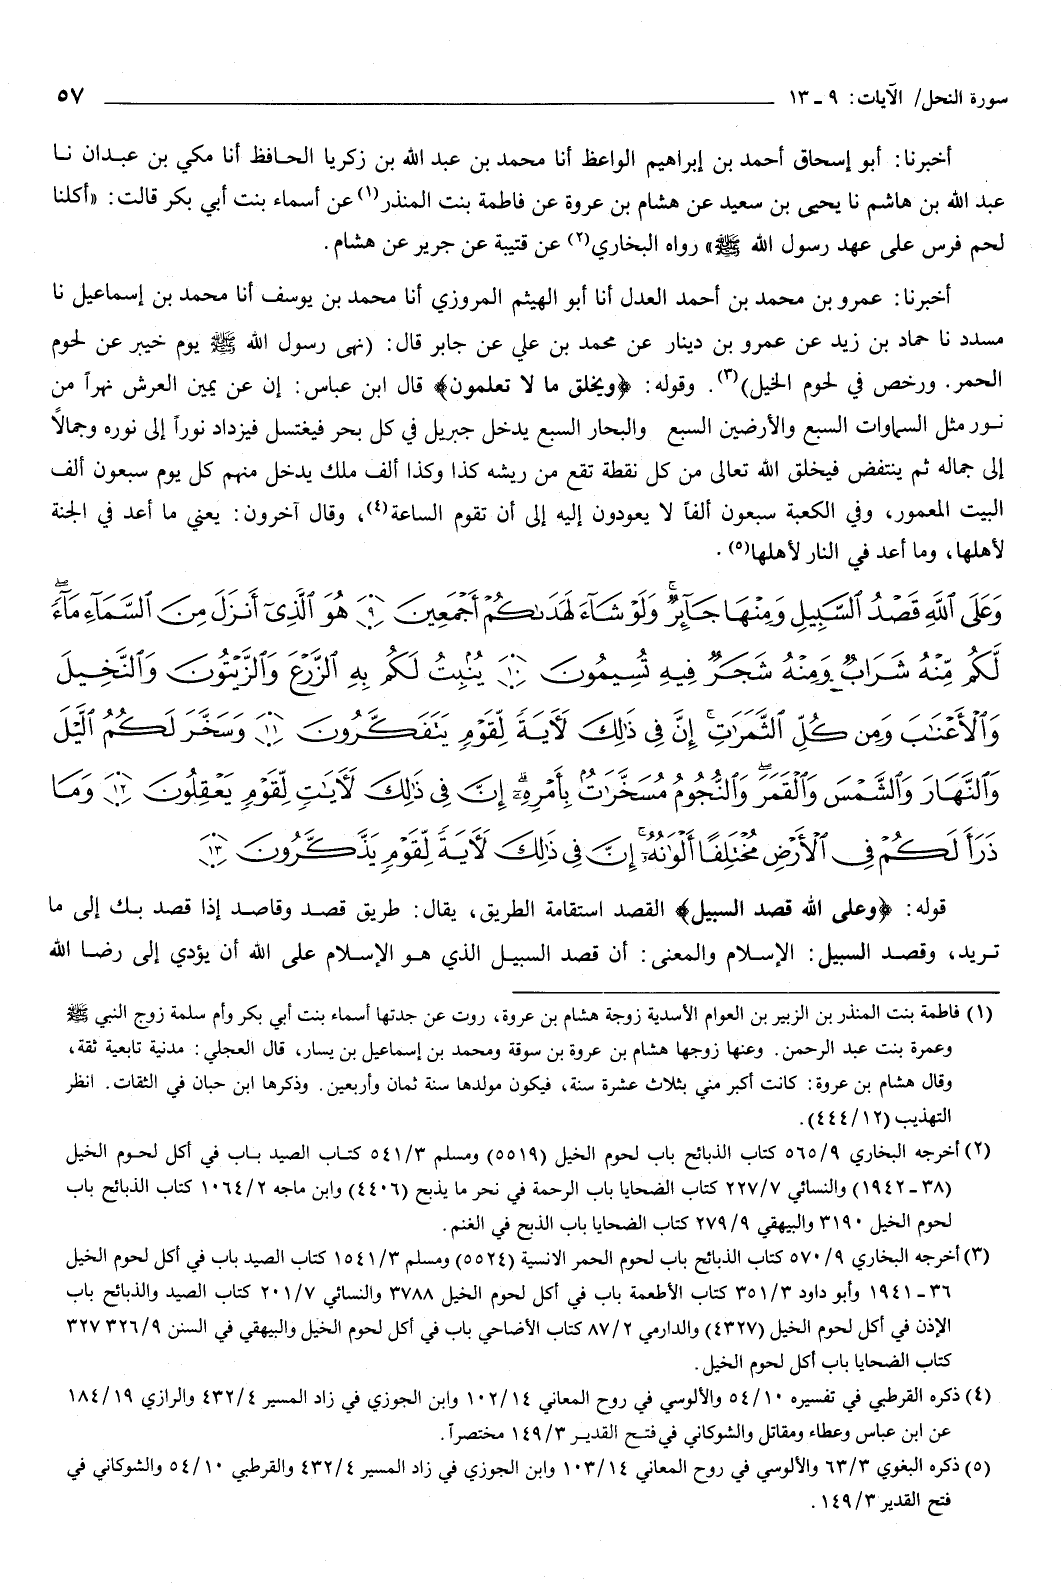 سورة النحل/ الآيات: ٩ ـ ١٣ ٥٧
أخبرنا: أبو إسحاق أحمد بن إبراهيم الواعظ أنا محمد بن عبد الله بن زكريا الحافظ أنا مكي بن عبدان نا
عبد الله بن هاشم نا يحيى بن سعيد عن هشام بن عروة عن فاطمة بنت المنذر(١) عن أسماء بنت أبي بكر قالت: «أكلنا
لحم فرس على عهد رسول الله ﷺ» رواه البخاري(٢) عن قتيبة عن جرير عن هشام.
أخبرنا: عمرو بن محمد بن أحمد العدل أنا أبو الهيثم المروزي أنا محمد بن يوسف أنا محمد بن إسماعيل نا
مسدد نا حماد بن زيد عن عمرو بن دينار عن محمد بن علي عن جابر قال: (نهى رسول الله ﷺ يوم خيبر عن لحوم
الحمر. ورخص في لحوم الخيل)(٣). وقوله: ﴿ويخلق ما لا تعلمون﴾ قال ابن عباس: إن عن يمين العرش نهراً من
نور مثل السماوات السبع والأرضين السبع والبحار السبع يدخل جبريل في كل بحر فيغتسل فيزداد نوراً إلى نوره وجمالاً
إلى جماله ثم ينتفض فيخلق الله تعالى من كل نقطة تقع من ريشه كذا وكذا ألف ملك يدخل منهم كل يوم سبعون ألف
البيت المعمور، وفي الكعبة سبعون ألفاً لا يعودون إليه إلى أن تقوم الساعة(٤)، وقال آخرون: يعني ما أعد في الجنة
لأهلها، وما أعد في النار لأهلها(٥).
وَعَلَى ٱللَّهِ قَصْدُ ٱلسَّبِيلِ وَمِنْهَا جَآئِرٌ ۚ وَلَوْ شَآءَ لَهَدَىٰكُمْ أَجْمَعِينَ ٩ هُوَ ٱلَّذِىٓ أَنزَلَ مِنَ ٱلسَّمَآءِ مَآءً ۖ
لَّكُم مِّنْهُ شَرَابٌ وَمِنْهُ شَجَرٌ فِيهِ تُسِيمُونَ ١٠ يُنۢبِتُ لَكُم بِهِ ٱلزَّرْعَ وَٱلزَّيْتُونَ وَٱلنَّخِيلَ
وَٱلْأَعْنَٰبَ وَمِن كُلِّ ٱلثَّمَرَٰتِ ۗ إِنَّ فِى ذَٰلِكَ لَأَيَةً لِّقَوْمٍ يَتَفَكَّرُونَ ١١ وَسَخَّرَ لَكُمُ ٱلَّيْلَ
وَٱلنَّهَارَ وَٱلشَّمْسَ وَٱلْقَمَرَ ۖ وَٱلنُّجُومُ مُسَخَّرَٰتٌۢ بِأَمْرِهِۦٓ ۗ إِنَّ فِى ذَٰلِكَ لَأَيَٰتٍ لِّقَوْمٍ يَعْقِلُونَ ١٢ وَمَا
ذَرَأَ لَكُمْ فِى ٱلْأَرْضِ مُخْتَلِفًا أَلْوَٰنُهُۥٓ ۗ إِنَّ فِى ذَٰلِكَ لَأَيَةً لِّقَوْمٍ يَذَّكَّرُونَ ١٣
قوله: ﴿وعلى الله قصد السبيل﴾ القصد استقامة الطريق، يقال: طريق قصد وقاصد إذا قصد بك إلى ما
تريد، وقصد السبيل: الإسلام والمعنى: أن قصد السبيل الذي هو الإسلام على الله أن يؤدي إلى رضا الله
(١) فاطمة بنت المنذر بن الزبير بن العوام الأسدية زوجة هشام بن عروة، روت عن جدتها أسماء بنت أبي بكر وأم سلمة زوج النبي ﷺ
وعمرة بنت عبد الرحمن. وعنها زوجها هشام بن عروة بن سوقة ومحمد بن إسماعيل بن يسار، قال العجلي: مدنية تابعية ثقة،
وقال هشام بن عروة: كانت أكبر مني بثلاث عشرة سنة، فيكون مولدها سنة ثمان وأربعين. وذكرها ابن حبان في الثقات. انظر
التهذيب (٤٤٤/١٢).
(٢) أخرجه البخاري ٥٦٥/٩ كتاب الذبائح باب لحوم الخيل (٥٥١٩) ومسلم ٥٤١/٣ كتاب الصيد باب في أكل لحوم الخيل
(٣٨ ـ ١٩٤٢) والنسائي ٢٢٧/٧ كتاب الضحايا باب الرحمة في نحر ما يذبح (٤٤٠٦) وابن ماجه ١٠٦٤/٢ كتاب الذبائح باب
لحوم الخيل ٣١٩٠ والبيهقي ٢٧٩/٩ كتاب الضحايا باب الذبح في الغنم.
(٣) أخرجه البخاري ٥٧٠/٩ كتاب الذبائح باب لحوم الحمر الانسية (٥٥٢٤) ومسلم ١٥٤١/٣ كتاب الصيد باب في أكل لحوم الخيل
٣٦ ـ ١٩٤١ وأبو داود ٣٥١/٣ كتاب الأطعمة باب في أكل لحوم الخيل ٣٧٨٨ والنسائي ٢٠١/٧ كتاب الصيد والذبائح باب
الإذن في أكل لحوم الخيل (٤٣٢٧) والدارمي ٨٧/٢ كتاب الأضاحي باب في أكل لحوم الخيل والبيهقي في السنن ٣٢٦/٩ ٣٢٧
كتاب الضحايا باب أكل لحوم الخيل.
(٤) ذكره القرطبي في تفسيره ٥٤/١٠ والألوسي في روح المعاني ١٠٢/١٤ وابن الجوزي في زاد المسير ٤٣٢/٤ والرازي ١٨٤/١٩
عن ابن عباس وعطاء ومقاتل والشوكاني في فتح القدير ١٤٩/٣ مختصراً.
(٥) ذكره البغوي ٦٣/٣ والألوسي في روح المعاني ١٠٣/١٤ وابن الجوزي في زاد المسير ٤٣٢/٤ والقرطبي ٥٤/١٠ والشوكاني في
فتح القدير ١٤٩/٣.